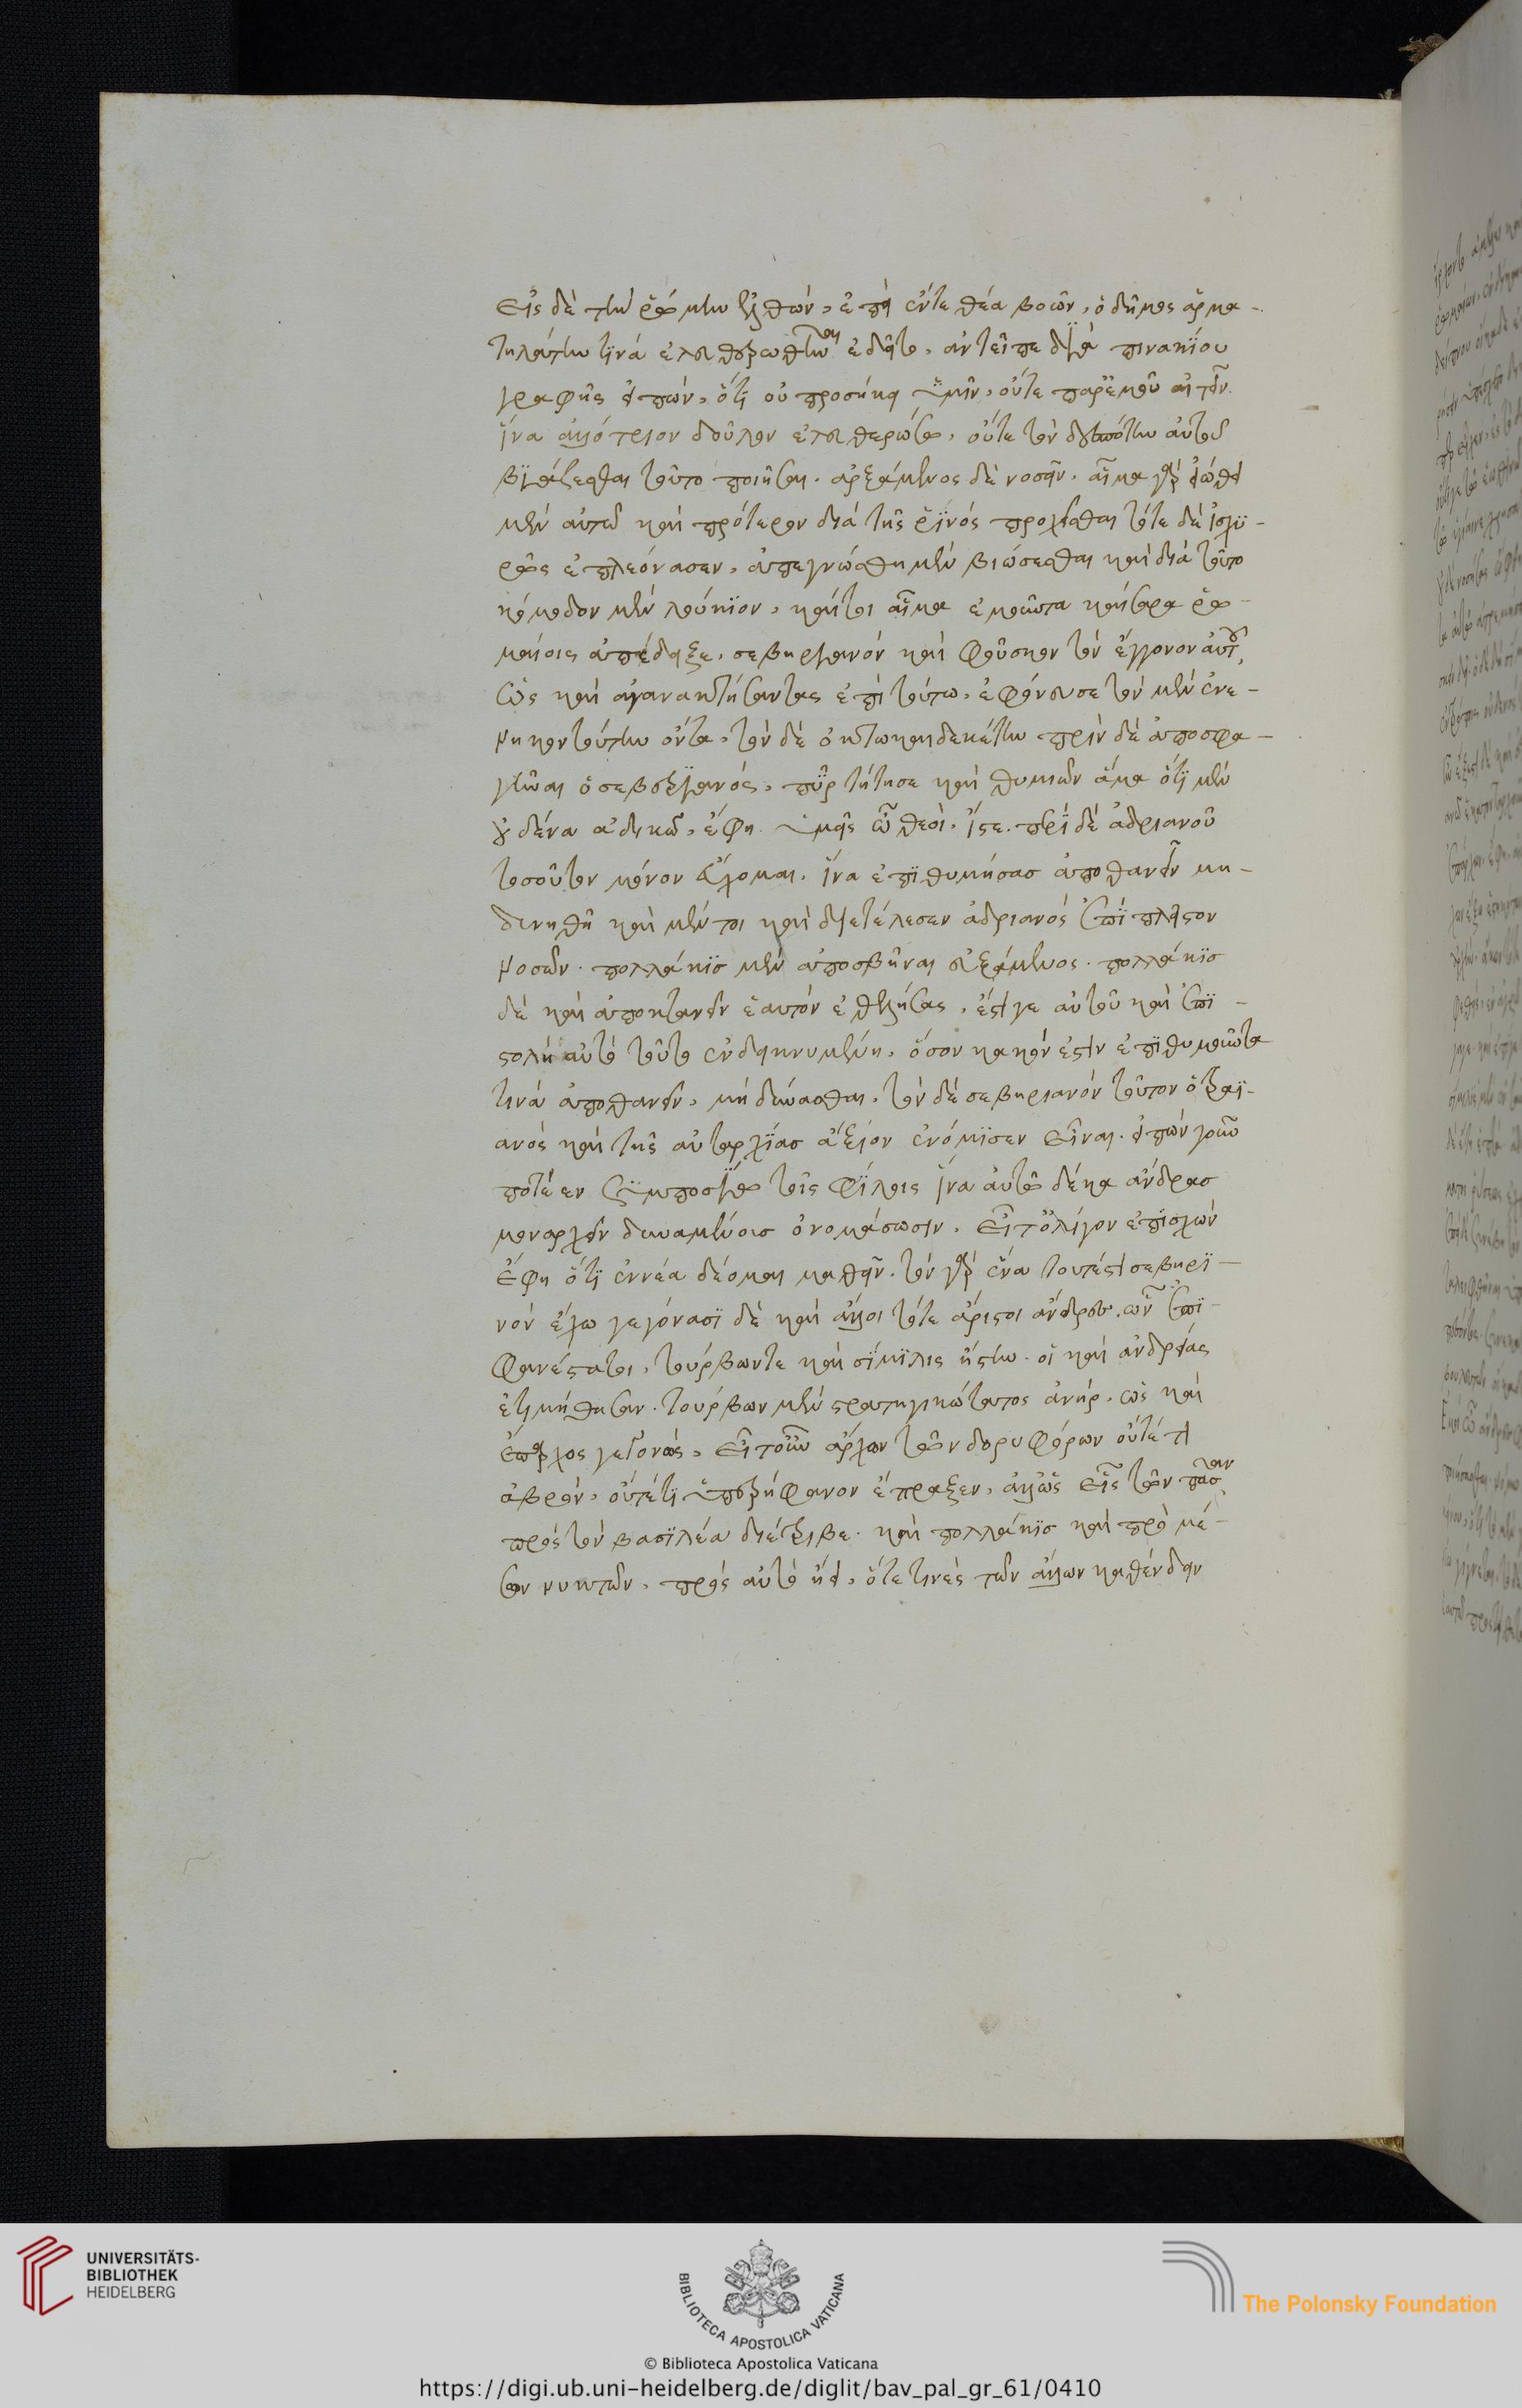 εἰς δὲ τὴν ῥώμην ἐλθών, ἐπεὶ ἔν τε θέα βοῶν, ὁ δῆμος ἁρμα-
τηλάτην τινά ἐλευθερωθῆναι ἐδεῖτο, ἀντεῖπε διὰ πινακίου
γραφῆς εἰπών, ὅτι οὐ προσήκει ὑμῖν, οὔτε παρ' ἐμοῦ αἰτεῖν
ἵνα ἀλλότριον δοῦλον ἐλευθερώσω, οὔτε τὸν δεσπότην αὐτοῦ
βιάζεσθαι τοῦτο ποιῆσαι. ἀρξάμενος δὲ νοσεῖν. αἷμα γὰρ εἰώθει
μὲν αὐτῷ καὶ πρότερον διὰ τῆς ῥινός προχεῖσθαι τότε δὲ ἰσχυ-
ρῶς ἐπλεόνασεν, ἀπεγνώσθη μὲν βιώσεσθαι καὶ διὰ τοῦτο
κόμοδον μὲν λούκιον, καίτοι αἷμα ἐμοῦντα καίσαρα ῥω-
μαίοις ἀπέδειξε, σεβηριανόν καὶ φοῦσκον τὸν ἔγγονον αὐτοῦ,
ὡς καὶ ἀγανακτήσαντας ἐπὶ τούτω, ἐφόνευσε τὸν μὲν ἐνε-
νηκοντούτην ὄντα, τὸν δὲ ὀκτωκαιδεκέτην πρὶν δὲ ἀποσφα-
γῆναι ὁ σεβηριανός, πῦρ ᾔτησε καὶ θυμιῶν ἅμα ὅτι μὲν
οὐδένα ἀδικῶ, ἔφη ὑμεῖς ὦ θεοὶ, ἴστε. περὶ δὲ ἀδριανοῦ
τοσοῦτον μόνον εὔχομαι, ἵνα ἐπιθυμήσας ἀποθανεῖν μὴ
δυνηθῆ καὶ μέντοι καὶ διετέλεσεν ἀδριανός ἐπὶ πλεῖστον
νοσῶν. πολλάκις μὲν ἀποσβῆναι εὐξάμενος. πολλάκις
δὲ καὶ ἀποκτανεῖν ἑαυτόν ἐθελήσας, ἔστι γε αὐτοῦ καὶ ἐπι-
στολὴ αὐτό τοῦτο ἐνδεικνυμένη, ὅσον κακόν ἐστιν ἐπιθυμοῦντα
τινά ἀποθανεῖν, μὴ δύνασθαι. τὸν δὲ σεβηριανόν τοῦτον ὁ τραϊ-
ανός καὶ τῆς αὐταρχίας ἄξιον ἐνόμισεν εἶναι. εἰπών γοῦν
ποτέ ἐν συμποσίω τοῖς φίλοις ἵνα αὐτῷ δέκα ἄνδρας
μοναρχεῖν δυναμένους ὀνομάσωσιν. εἶτ' ὀλίγον ἐπισχών
ἔφη ὅτι ἐννέα δέομαι μαθεῖν. τὸν γὰρ ἕνα τουτέστι σεβηρι-
νόν ἔχω γεγόνασι δὲ καὶ ἄλλοι τότε ἄριστοι ἄνδρες. ὧν ἐπι-
φανέστατοι, τούρβων τε καὶ σίμιλις ἤστην. οἳ καὶ ἀνδριάσι
ἐτιμήθησαν. τούρβων μὲν στρατηγικώτατος ἀνήρ. ὡς καὶ
ἔπαρχος γεγονώς, εἴτ' οὖν ἄρχων τῶν δορυφόρων οὔτέ τι
ἁβρόν, οὔτέ τι ὑπερήφανον ἔπραξεν, ἀλλ' ὡς εἷς τῶν πάντων
πρὸς τὸν βασιλέα διέτριβε. καὶ πολλάκις καὶ πρὸ μέ-
σων νυκτῶν, πρὸς αὐτὸ ᾔει, ὅτε τινὲς τῶν ἄλλων καθεύδειν
UNIVERSITÄTS-
BIBLIOTHEK
HEIDELBERG
BIBLIOTECA APOSTOLICA VATICANA
The Polonsky Foundation
© Biblioteca Apostolica Vaticana
https://digi.ub.uni-heidelberg.de/diglit/bav_pal_gr_61/0410